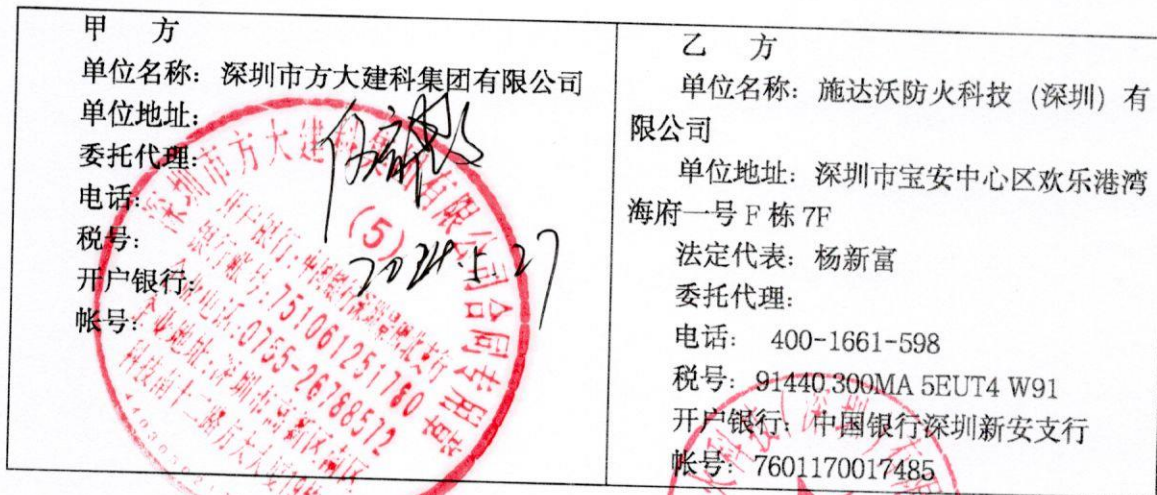 甲 方
单位名称：深圳市方大建科集团有限公司
单位地址：
委托代理：
电话：
税号：
开户银行：
帐号：
深圳市方大建科集团有限公司合同专用章
(5)
开户银行：中国银行深圳
银行账号：751061251780
企业电话：0755-26788572
企业地址：深圳市高新区南区
科技南十二路方大大厦19
2024.5.27
乙 方
单位名称：施达沃防火科技（深圳）有
限公司
单位地址：深圳市宝安中心区欢乐港湾
海府一号 F 栋 7F
法定代表：杨新富
委托代理：
电话： 400-1661-598
税号：91440.300MA 5EUT4 W91
开户银行：中国银行深圳新安支行
帐号：7601170017485